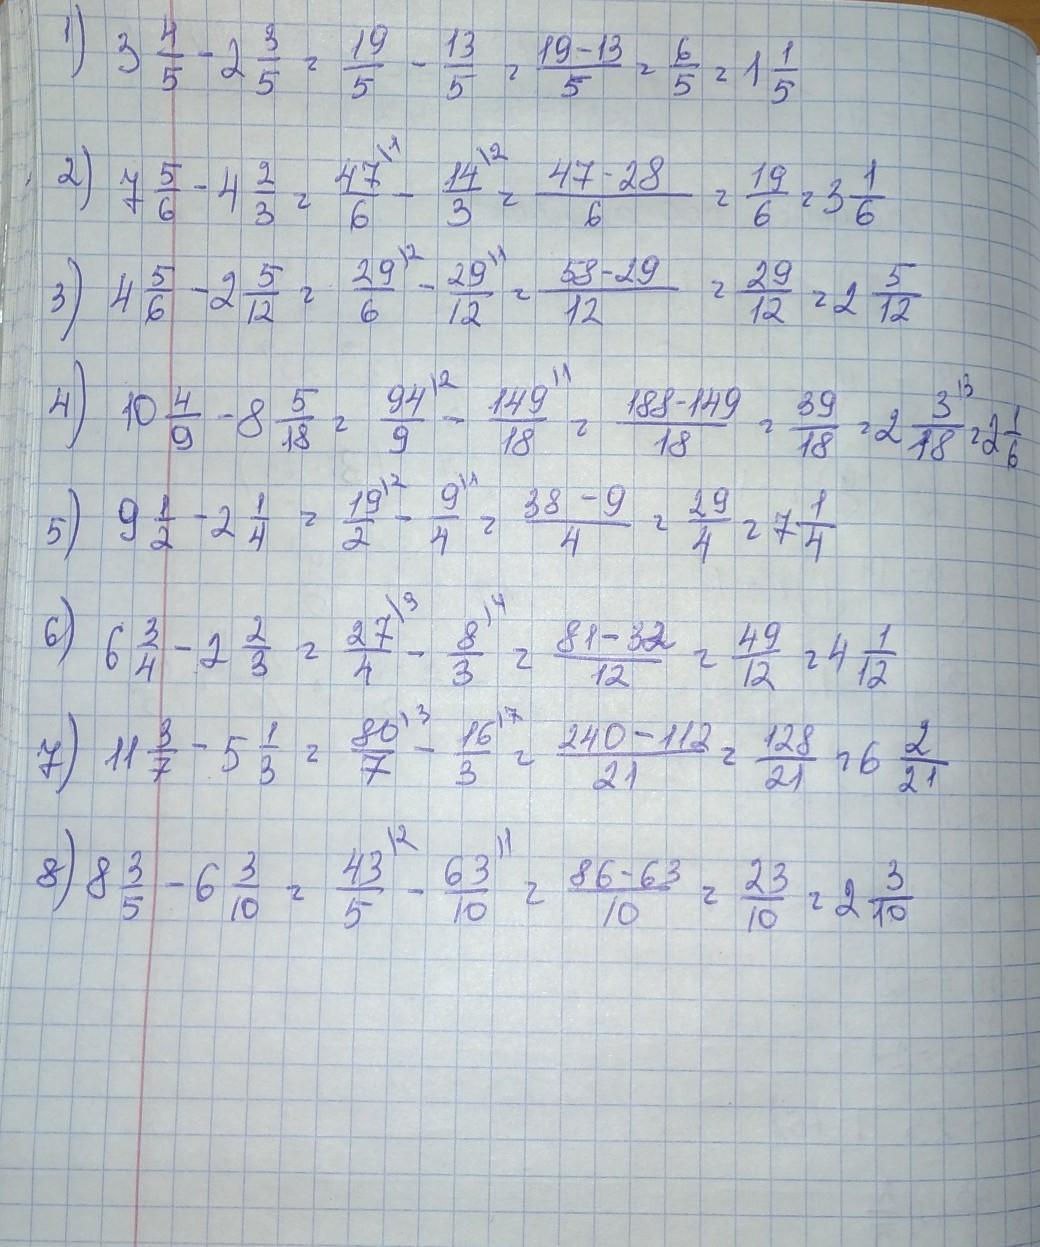 1) 3 4/5 - 2 3/5 = 19/5 - 13/5 = (19-13)/5 = 6/5 = 1 1/5
2) 7 5/6 - 4 2/3 = 47\1/6 - 14\2/3 = (47-28)/6 = 19/6 = 3 1/6
3) 4 5/6 - 2 5/12 = 29\2/6 - 29\1/12 = (58-29)/12 = 29/12 = 2 5/12
4) 10 4/9 - 8 5/18 = 94\2/9 - 149\1/18 = (188-149)/18 = 39/18 = 2 3\3/18 = 2 1/6
5) 9 1/2 - 2 1/4 = 19\2/2 - 9\1/4 = (38-9)/4 = 29/4 = 7 1/4
6) 6 3/4 - 2 2/3 = 27\3/4 - 8\4/3 = (81-32)/12 = 49/12 = 4 1/12
7) 11 3/7 - 5 1/3 = 80\3/7 - 16\7/3 = (240-112)/21 = 128/21 = 6 2/21
8) 8 3/5 - 6 3/10 = 43\2/5 - 63\1/10 = (86-63)/10 = 23/10 = 2 3/10